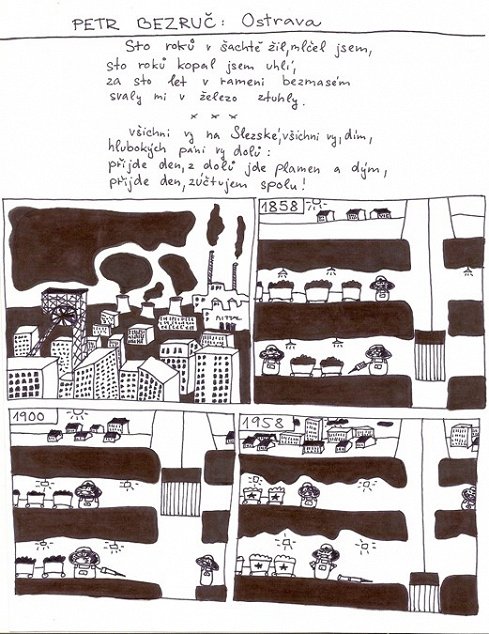 PETR BEZRUČ: Ostrava
Sto roků v šachtě žil, mlčel jsem,
sto roků kopal jsem uhlí,
za sto let v rameni bezmasém
svaly mi v železo ztuhly.
× × ×
všichni vy na Slezské, všichni vy, dím,
hlubokých páni vy dolů:
přijde den, z dolů jde plamen a dým,
přijde den, zúčtujem spolu!
1858
1900
1958